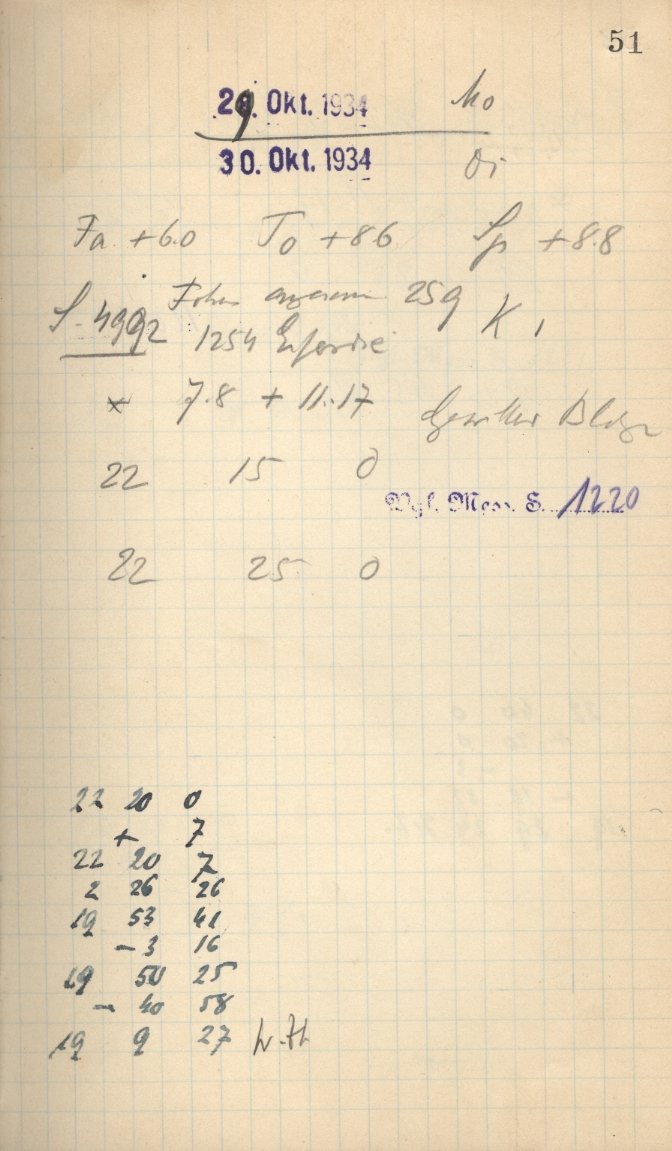 51
29. Okt. 1934 Mo
30. Okt. 1934 Di
Fa +6.0 To +8.6 Sp +8.8
S-4992 259 K 1
1254
x 7.8 + 11.17
22 15 0
Vgl. Mess. S. 1220
22 25 0
22 20 0
+ 7
22 20 7
2 26 26
19 53 41
-3 16
19 50 25
- 40 58
19 9 27